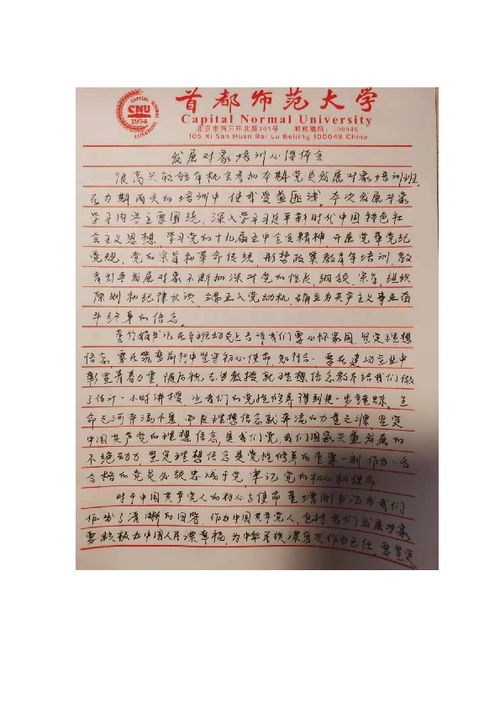 CAPITAL NORMAL UNIVERSITY
CNU
1954
首都师范大学
Capital Normal University
北京市西三环北路105号 邮政编码：100048
105 Xi San Huan Bei Lu Beijing 100048 China
发展对象培训心得体会
很高兴能够有机会参加本期党员发展对象培训班,
在为期两天的培训中使我受益匪浅。本次发展对象
学习内容主要围绕，深入学习习近平新时代中国特色社
会主义思想，学习党的十九届五中全会精神，开展党章党纪
党规，党的宗旨和革命传统，形势政策教育等培训，教
育引导发展对象不断加深对党的性质，纲领，宗旨，组织
原则和纪律认识，端正入党动机，确立为共产主义事业奋
斗终身的信念。
书记在开班动员上告诉我们要心怀家国，坚定理想
信念，要在筑梦新时中坚守初心使命，要在建功立业中
彰显青春力量，随后
了信念
命之河奔流不息，而理想信念就奔流的力量之源，坚定
中国共产党的理想信念，是我们党，我们国家兴盛发展的
不绝动力，坚定理想信念是党性修养的重要一则，作为一名
合格的党员必须忠诚于党，牢记党的初心和使命。
对于中国共产党人的初心与使命，书记为我们
作出了清晰的回答，作为中国共产党人，包括我们发展对象
要积极为中国人民谋幸福，为中华民族谋复兴作为己任，要坚定